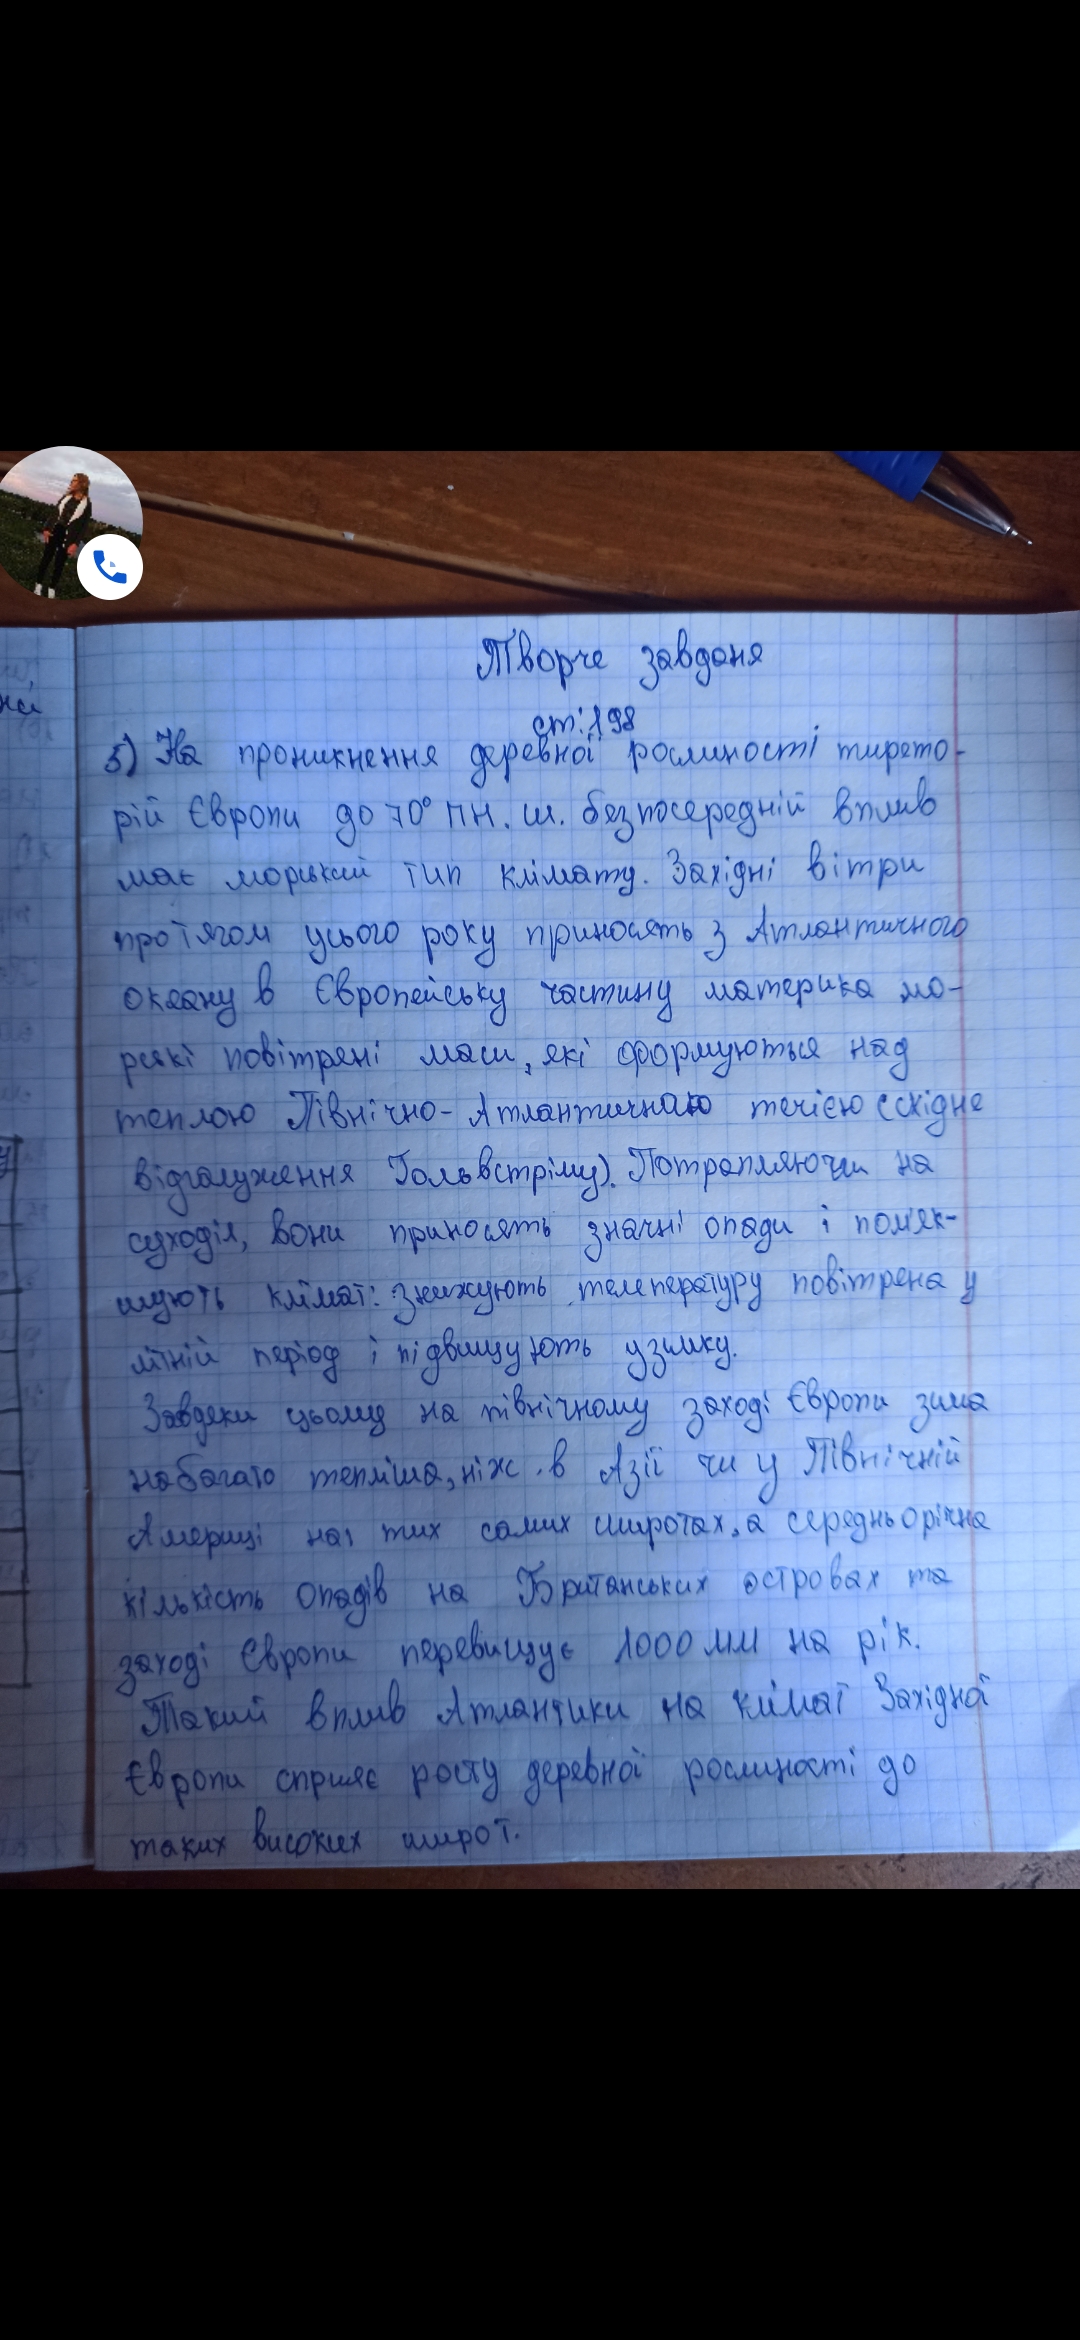 Творче завданя
ст: 198
5) На проникнення деревної рослиності тирето-
рій Європи до 70° ПН. ш. безпосередній вплив
має морський тип клімату. Західні вітри
протягом усього року приносять з Атлантичного
океану в Європейську частину материка мо-
рські повітряні маси, які формуються над
теплою Північно-Атлантичною течією (східне
відгалуження Гольвстріму). Потрапляючи на
суходіл, вони приносять значні опади і помʼяк-
шують клімат: знижують температуру повітряна у
літній період і підвищують узимку.
Завдяки цьому на північному заході Європи зима
набагато тепліша, ніж в Азії чи у Північній
Америці на тих самих широтах, а середньорічна
кількість опадів на Британських островах та
заході Європи перевищує 1000 мм на рік.
Такий вплив Атлантики на клімат Західної
Європи сприяє росту деревної рослиності до
таких високих широт.